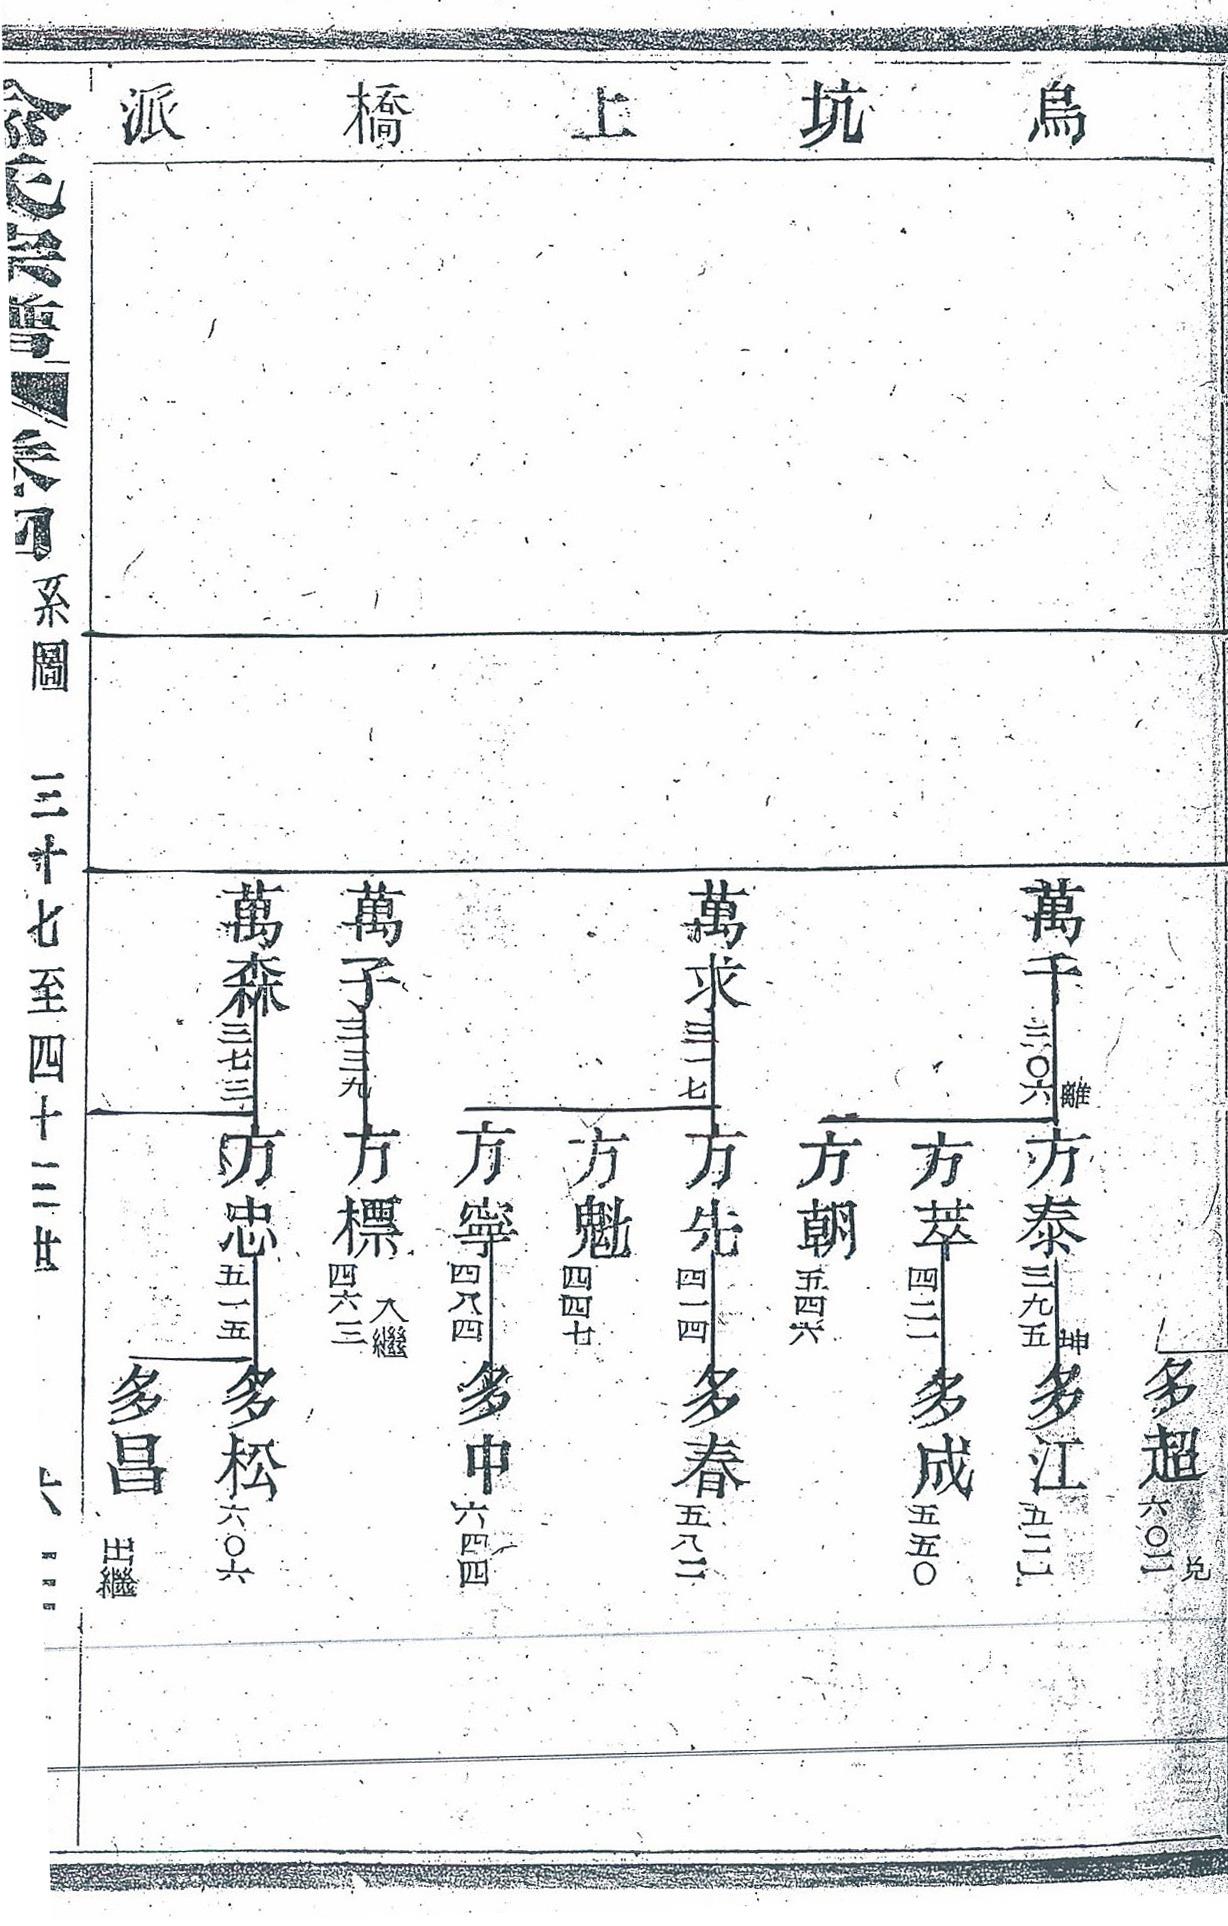 烏坑上橋派
多超 六〇二 兌
萬千 三〇六 離
方泰 三九五 坤
多江 五二一
方萃 四二一
多成 五五〇
方朝 五四六
萬求 三一七
方先 四一四
多春 五八二
方魁 四四七
方寧 四八四
多中 六四四
萬子 三三九
方標 四六三 入繼
萬森 三七三
方忠 五一五
多松 六〇六
多昌 出繼
氏宗譜 卷四 系圖 三十七至四十二世 六